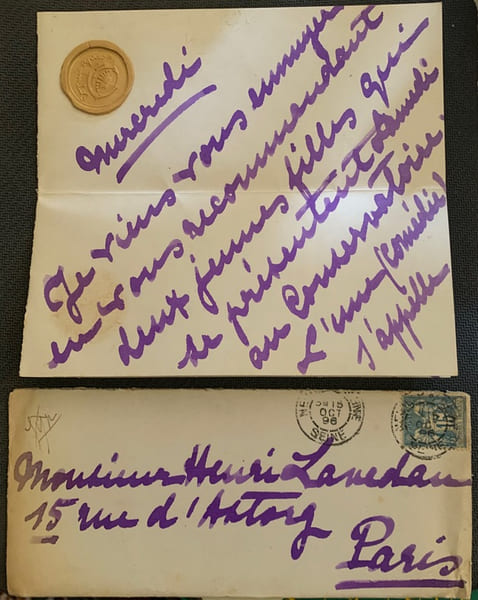 Mercredi
Je viens vous ennuyer
en vous recommandant
deux jeunes filles qui
se présentent Samedi
au Conservatoire.
L'une (Comédie)
s'appelle
15
OCT
96
SEINE
Monsieur Henri Lavedan
15 rue d'Astorg
Paris